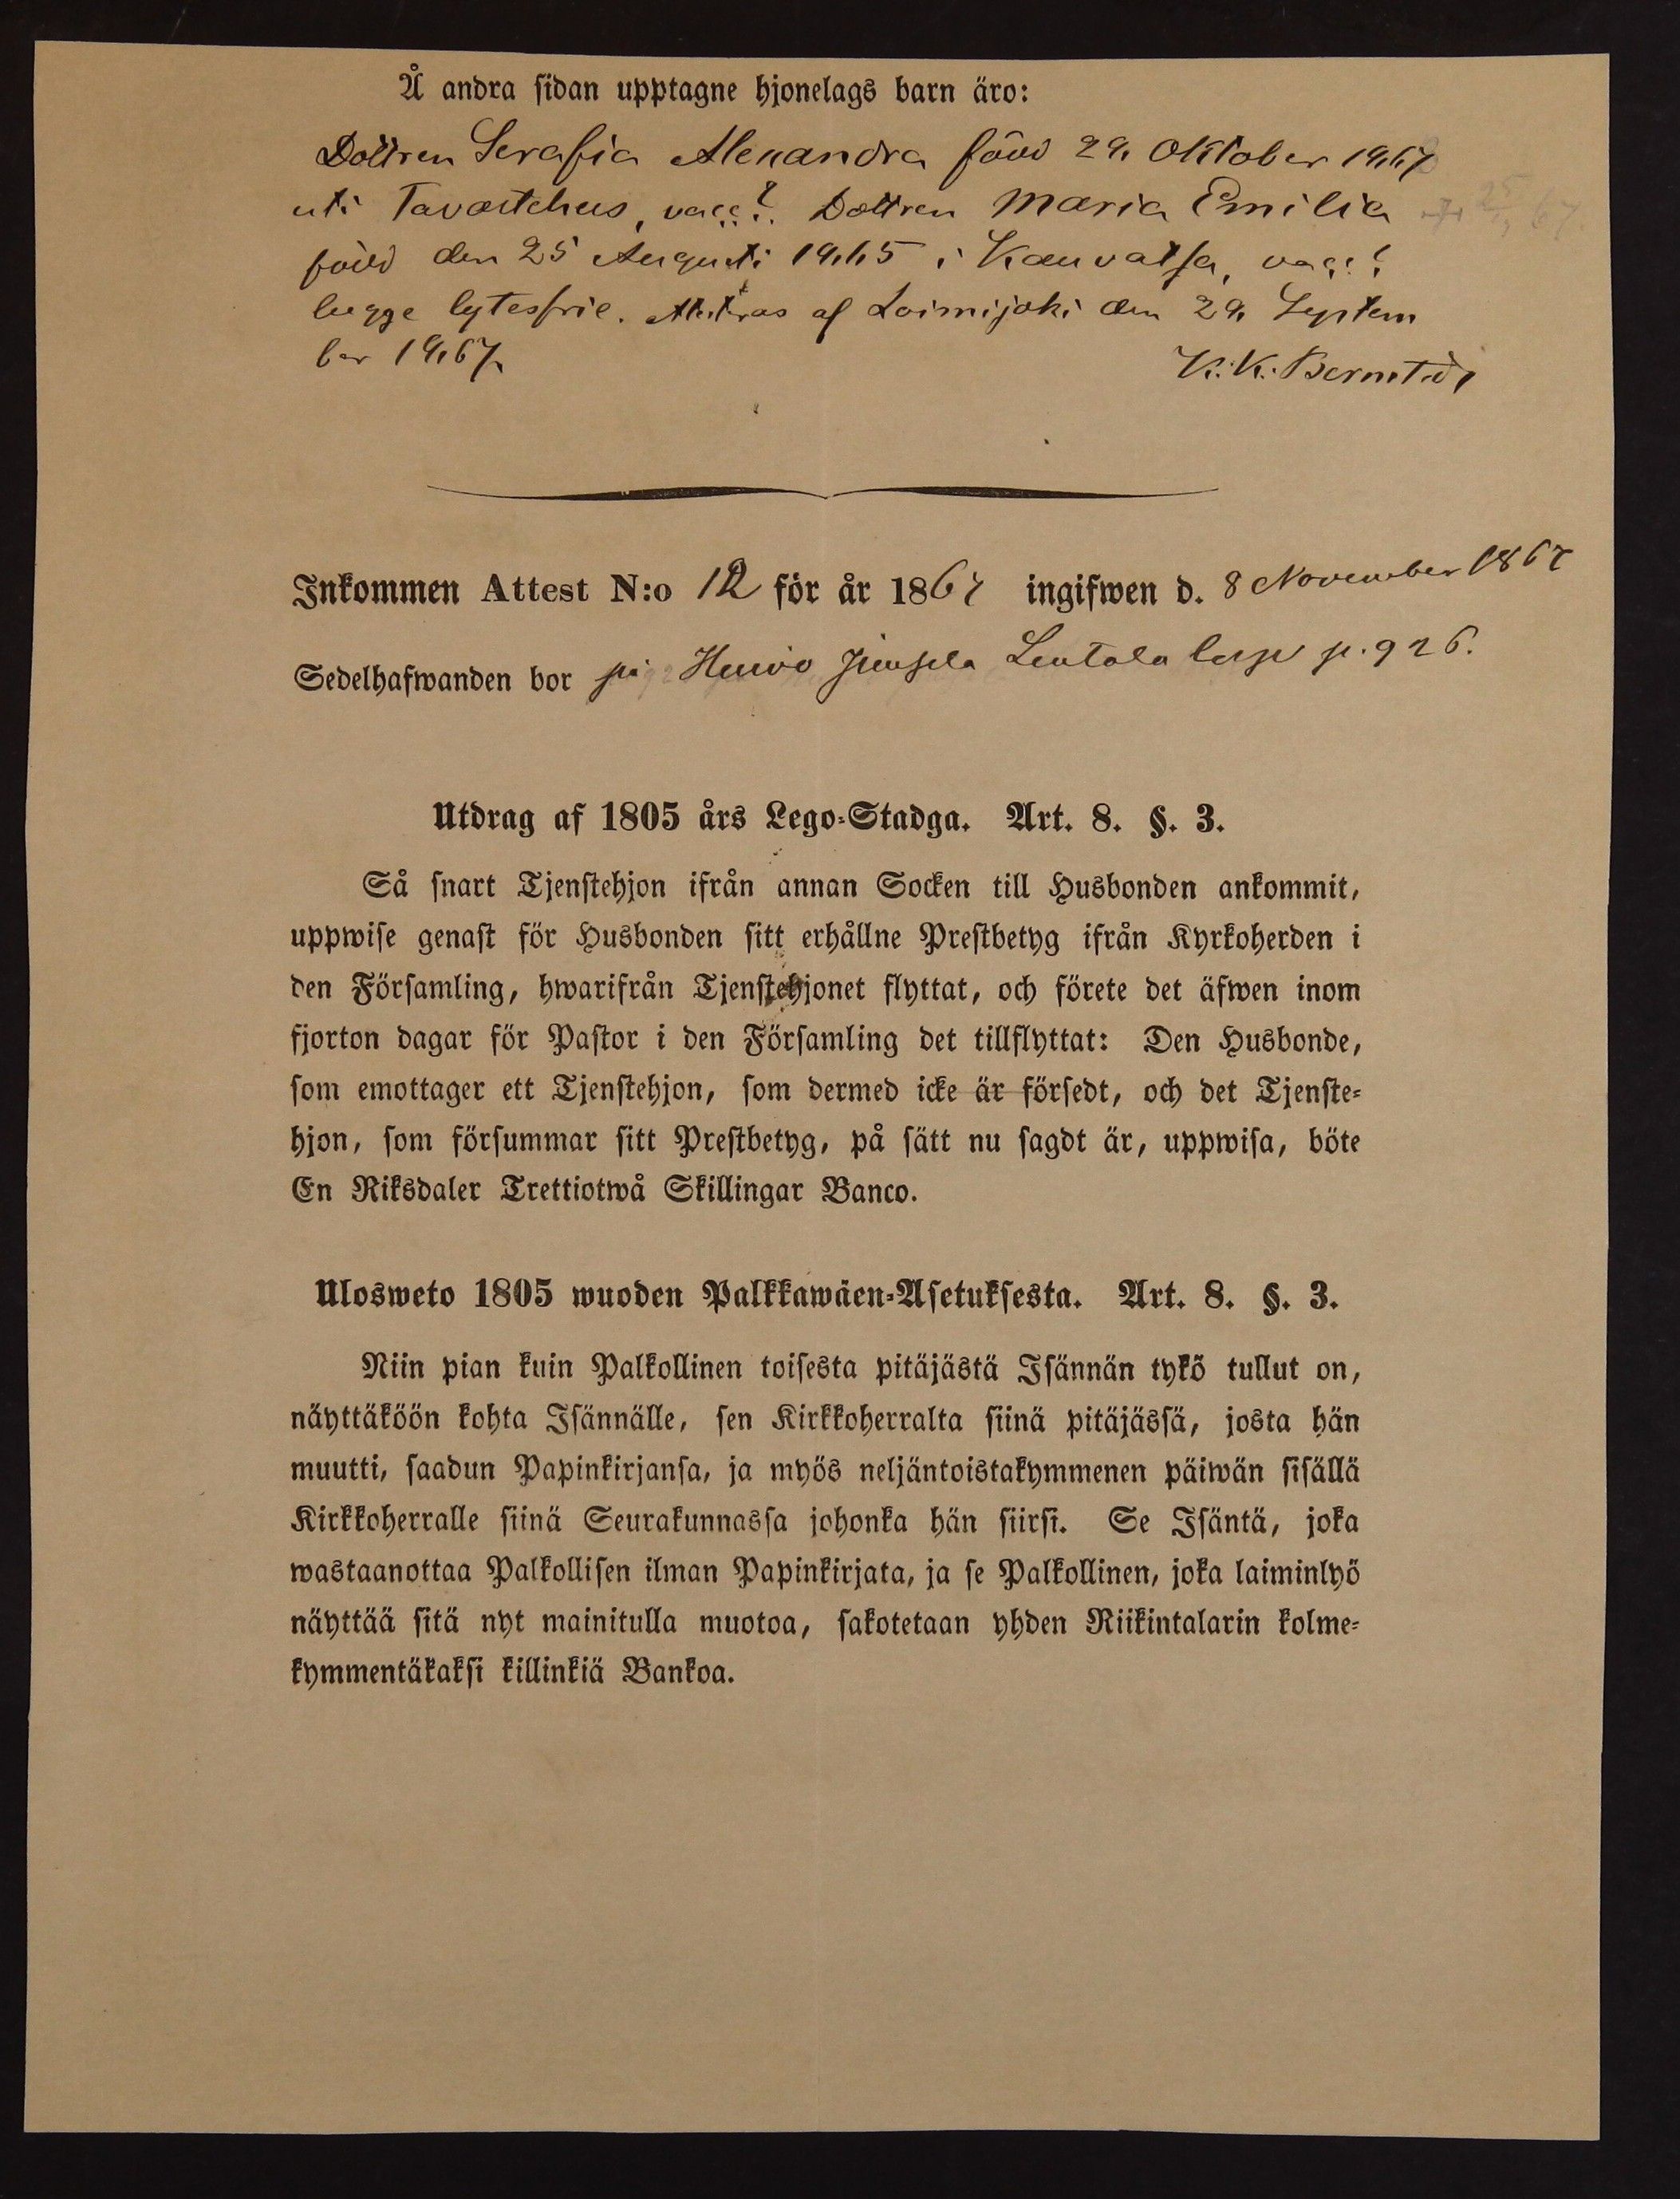 Å andra sidan upptagne hjonelags barn äro:
Dottren Serafia Alexandra född 29. Oktober
uti Tavastehus, vacc. Dottren Maria Emilia
född den 25 Augusti i Kauvatsa, vacc.
begge lytesfrie. Attesteras af Loimijoki den 29. Septem
ber
K. K.
Inkommen Attest N:o 12 för år 1867 ingifwen d. 8 November 1867
Sedelhafwanden bor på p. 926.
Utdrag af 1805 års Lego-Stadga. Art. 8. §. 3.
Så snart Tjenstehjon ifrån annan Socken till Husbonden ankommit,
uppwise genast för Husbonden sitt erhållne Prestbetyg ifrån Kyrkoherden i
den Församling, hwarifrån Tjenstehjonet flyttat, och förete det äfwen inom
fjorton dagar för Pastor i den Församling det tillflyttat: Den Husbonde,
som emottager ett Tjenstehjon, som dermed icke är försedt, och det Tjenste-
hjon, som försummar sitt Prestbetyg, på sätt nu sagdt är, uppwisa, böte
En Riksdaler Trettiotwå Skillingar Banco.
Ulosweto 1805 wuoden Palkkawäen-Asetuksesta. Art. 8. §. 3.
Niin pian kuin Palkollinen toisesta pitäjästä Isännän tykö tullut on,
näyttäköön kohta Isännälle, sen Kirkkoherralta siinä pitäjässä, josta hän
muutti, saadun Papinkirjansa, ja myös neljäntoistakymmenen päiwän sisällä
Kirkkoherralle siinä Seurakunnassa johonka hän siirsi. Se Isäntä, joka
wastaanottaa Palkollisen ilman Papinkirjata, ja se Palkollinen, joka laiminlyö
näyttää sitä nyt mainitulla muotoa, sakotetaan yhden Riikintalarin kolme-
kymmentäkaksi killinkiä Bankoa.